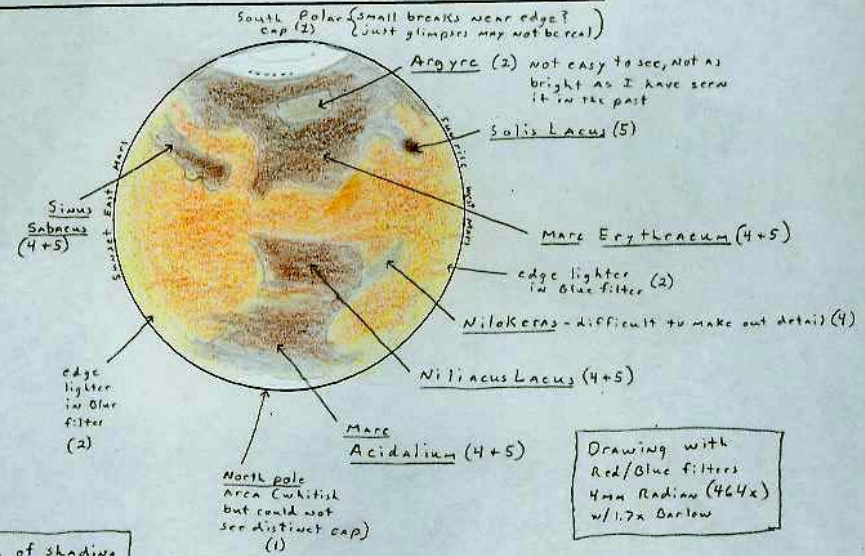 South Polar {small breaks near edge?
cap (1) {just glimpses may not be real)
Argyre (2) not easy to see, not as
bright as I have seen
it in the past
Solis Lacus (5)
Sunrise West Mars
Sunset East Mars
Sinus
Sabaeus
(4+5)
Mare Erythraeum (4+5)
edge lighter
in Blue filter (2)
Nilokeras - difficult to make out detail (4)
Niliacus Lacus (4+5)
edge
lighter
in Blue
filter
(2)
Mare
Acidalium (4+5)
North pole
area (whitish
but could not
see distinct cap)
(1)
Drawing with
Red/Blue filters
4mm Radian (464x)
w/1.7x Barlow
of shading